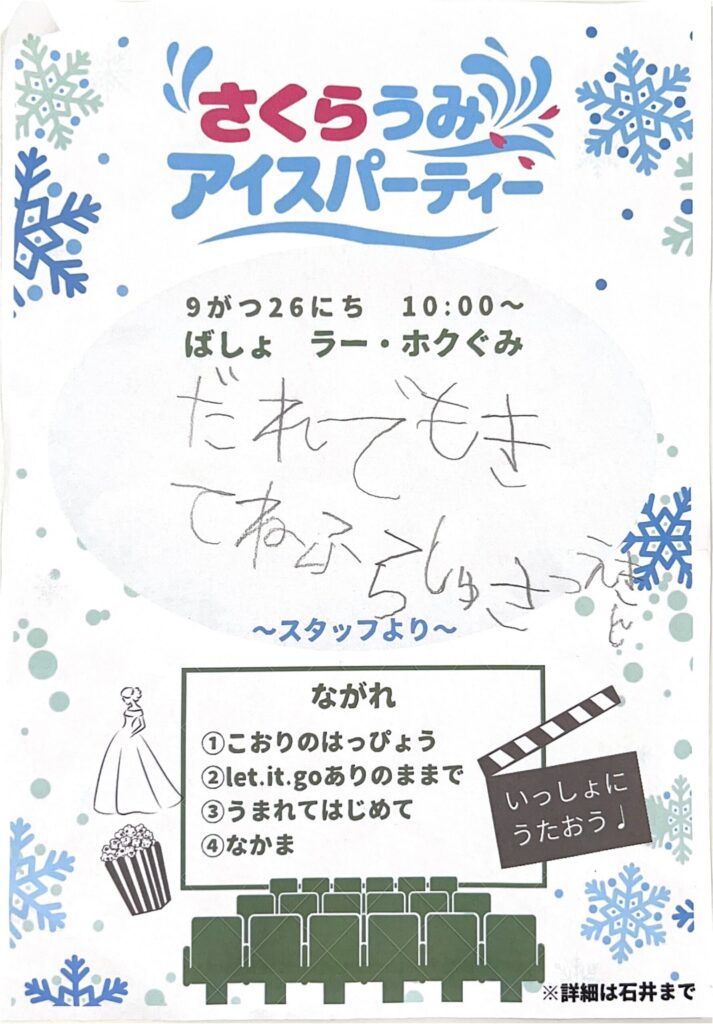 さくらうみ
アイスパーティー
9がつ26にち 10:00～
ばしょ ラー・ホクぐみ
だれでもき
てね
～スタッフより～
ながれ
①こおりのはっぴょう
②let.it.goありのままで
③うまれてはじめて
④なかま
いっしょに
うたおう♩
※詳細は石井まで